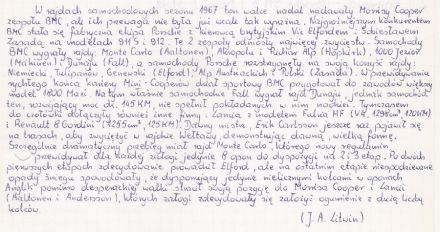 W rajdach samochodowych sezonu 1967 ton walce nadal nadawały Morrisy Cooper
zespołu BMC, ale ich przewaga nie była już wcale tak wyraźna. Najgroźniejszym konkurentem
BMC stała się fabryczna ekipa Porsche z kierowcą brytyjskim Vic Elfordem i Sobiesławem
Zasadą na modelach 911S i 912. Te 2 zespoły odniosły najwięcej zwycięstw. Samochody
BMC wygrały rajdy: Monte Carlo (Aaltonen), Akropolu i Furkiw Alp (Hopkirk), 1000 Jezior
(Mäkinen) i Dunaju (Fall), a samochody Porsche rozstrzygnęły na swoją korzyść rajdy:
Niemiecki, Tulipanów, Genewski (Elford), Alp Austriackich i Polski (Zasada). W przewidywaniu
rychłego końca kariery Mini Cooperów dział sportowy BMC przygotował do zawodów większy
model, 1800 Maxi. Na tym właśnie samochodzie Fall wygrał rajd Dunaju, jednak samochód
ten, rozwijający moc ok. 145 KM, nie spełnił pokładanych w nim nadziei. Tymczasem
do czołówki dołączyły również inne firmy: Lancia z modelem Fulvia HF (V4, 1298 cm³,
i Renault 8 Gordini (1255 cm³, Dawny mistrz, Erik Carlsson jeszcze raz pojawił się
na trasach, aby zwyciężyć w rajdzie Vltava, demonstrując dawną, wielką formę.
Szczególnie dramatyczny przebieg miał rajd Monte Carlo, którego nowy regulamin
przewidywał dla każdej załogi jedynie 8 opon do dyspozycji na 2 i 3 etap. Po dwóch
pierwszych etapach zdecydowanie prowadził Elford, ale na ostatnim etapie niespodziewane
opady śniegu spowodowały, że dysponujący jedynie nielicznymi kolcami w oponach
Anglik pomimo desperackiej walki stracił swoją pozycję do Morrisa Cooper i Lancii
(Aaltonen i Andersson), których załogi zdecydowały się założyć ogumienie z dużą liczbą
kolców.
(J. A. Litwin)